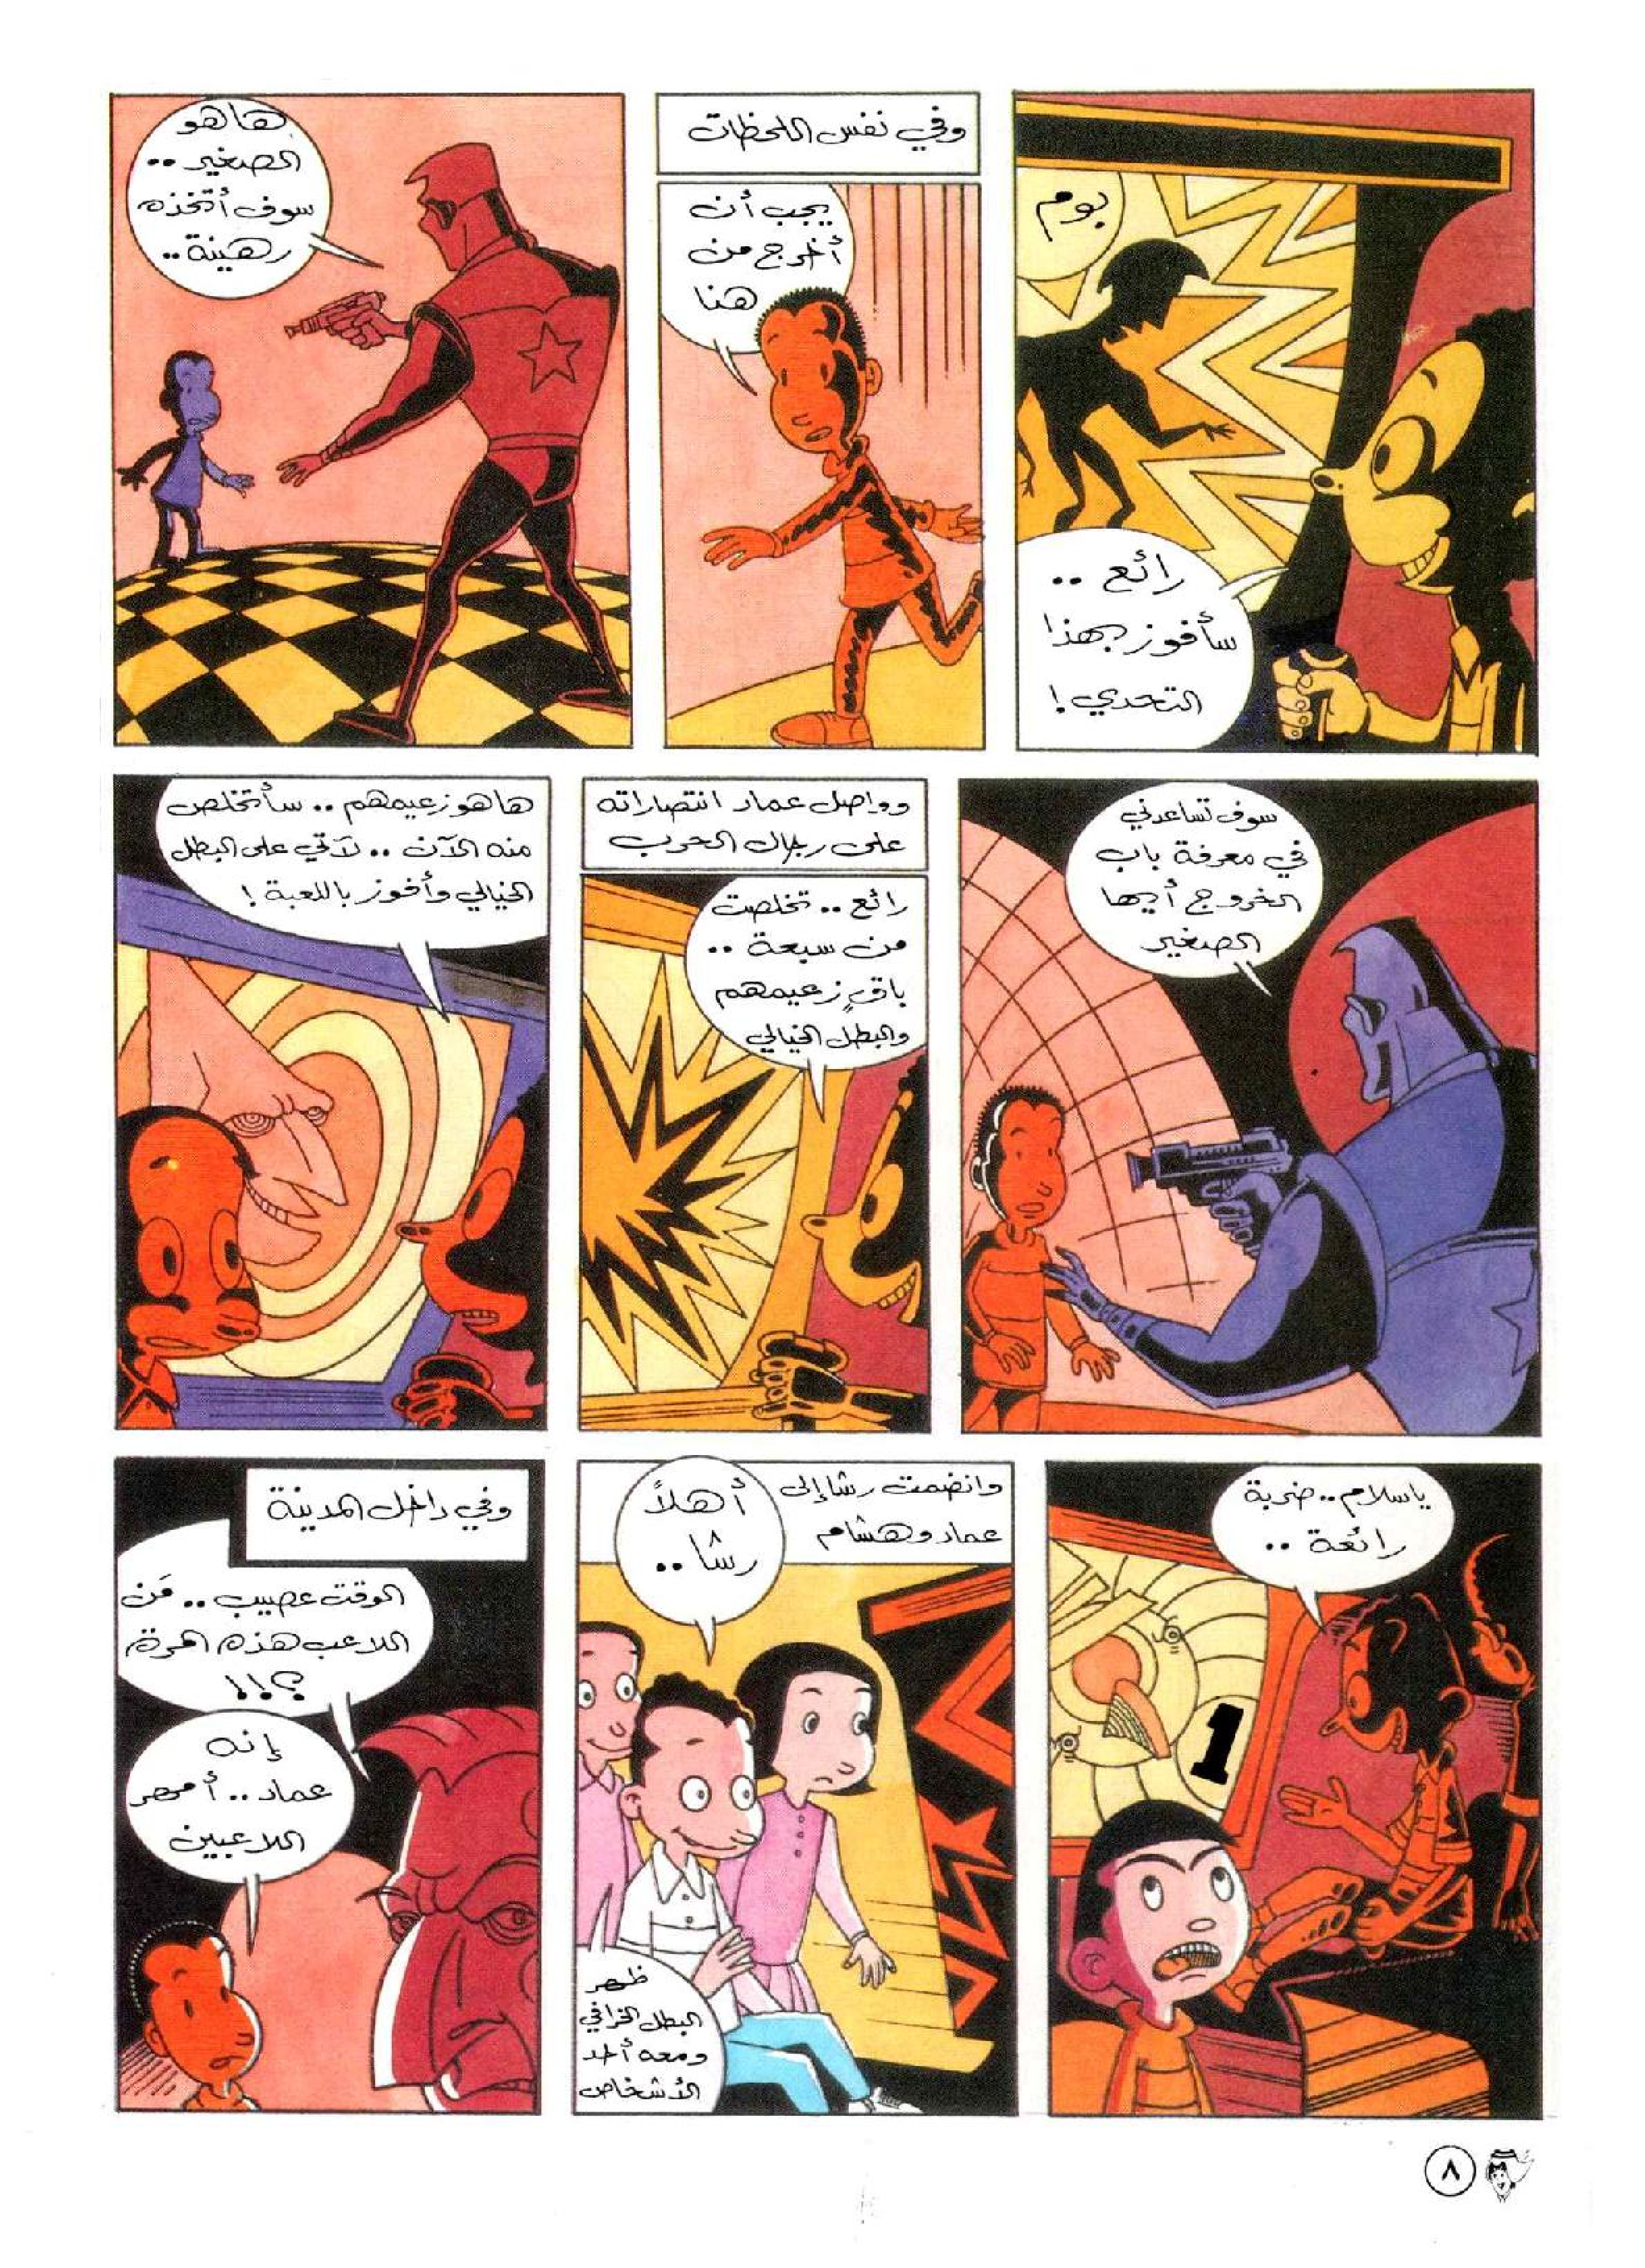 بوم
رائع ..
سأفوز بهذا
التحدي !
وفي نفس اللحظات
يجب أن
أخرج من
هنا
هاهو
الصغير ..
سوف أتخذه
رهينة ..
سوف تساعدني
في معرفة باب
الخروج أيها
الصغير
وواصل عماد انتصاراته
على رجال الحرب
رائع .. تخلصت
من سبعة ..
باقٍ زعيمهم
والبطل الخيالي
هاهو زعيمهم .. سأتخلص
منه الآن .. لآتي على البطل
الخيالي وأفوز باللعبة !
ياسلام .. ضربة
رائعة ..
1
وانضمت رشا إلى
عماد وهشام
أهلاً
رشا ..
ظهر
البطل الخرافي
ومعه أحد
الأشخاص
وفي داخل المدينة
الوقت عصيب .. مَن
اللاعب هذه المرة
؟!!
إنه
عماد .. أمهر
اللاعبين
٨